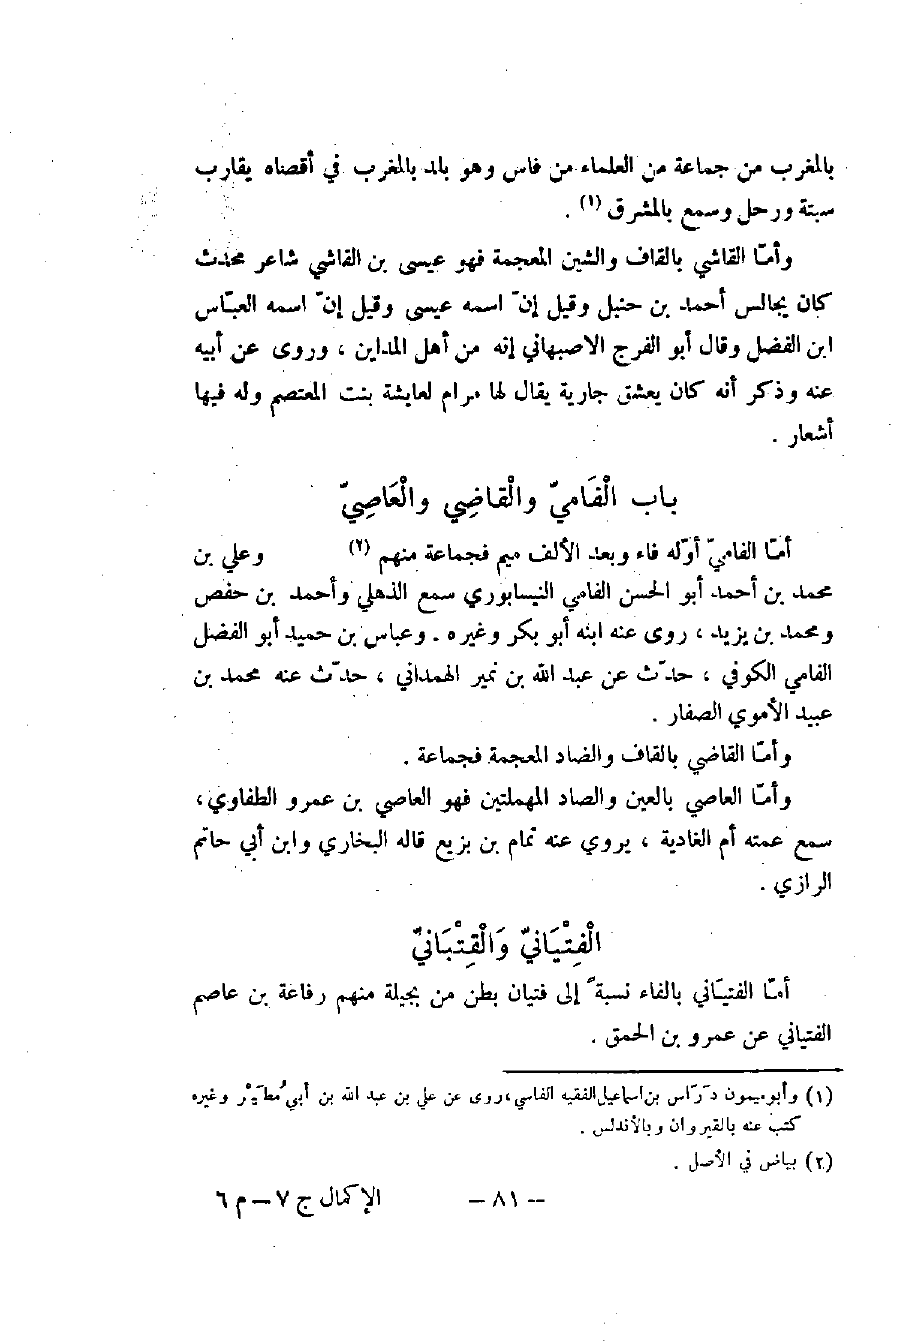 بالمغرب من جماعة من العلماء من فاس وهو بالد بالمغرب في أقصاه يقارب
سبتة ورحل وسمع بالمشرق (١) .
وأمّا القاشي بالقاف والشين المعجمة فهو عيسى بن القاشي شاعر محدث
كان يجالس أحمد بن حنبل وقيل إنّ اسمه عيسى وقيل إنّ اسمه العبّاس
ابن الفضل وقال أبو الفرج الاصبهاني إنه من أهل المداين ، وروى عن أبيه
عنه وذكر أنه كان يعشق جارية يقال لها مرام لعايشة بنت المعتصم وله فيها
أشعار .
باب الْفَاميّ والْقاضِي والْعَاصِيّ
أمّا الفاميّ أوّله فاء وبعد الألف ميم فجماعة منهم (٢) وعلي بن
محمد بن أحمد أبو الحسن الفامي النيسابوري سمع الذهلي وأحمد بن حفص
ومحمد بن يزيد ، روى عنه ابنه أبو بكر وغيره . وعباس بن حميد أبو الفضل
الفامي الكوفي ، حدّث عن عبد الله بن نمير الهمداني ، حدّث عنه محمد بن
عبيد الأموي الصفار .
وأمّا القاضي بالقاف والضاد المعجمة فجماعة .
وأمّا العاصي بالعين والصاد المهملتين فهو العاصي بن عمرو الطفاوي ،
سمع عمته أم الغادية ، يروي عنه تمام بن بزيع قاله البخاري وابن أبي حاتم
الرازي .
الْفِتْيَانيّ وَالْقِتْبَانيّ
أمّا الفتيَاني بالفاء نسبةً إلى فتيان بطن من بجيلة منهم رفاعة بن عاصم
الفتياني عن عمرو بن الحمق .
(١) وأبو ميمون دَرّاس بن اسماعيل الفقيه الفاسي ، روى عن علي بن عبد الله بن أبي مُطَيْر وغيره
كتب عنه بالقيروان وبالأندلس .
(٢) بياض في الأصل .
– ٨١ – الإكمال ج ٧ – م ٦